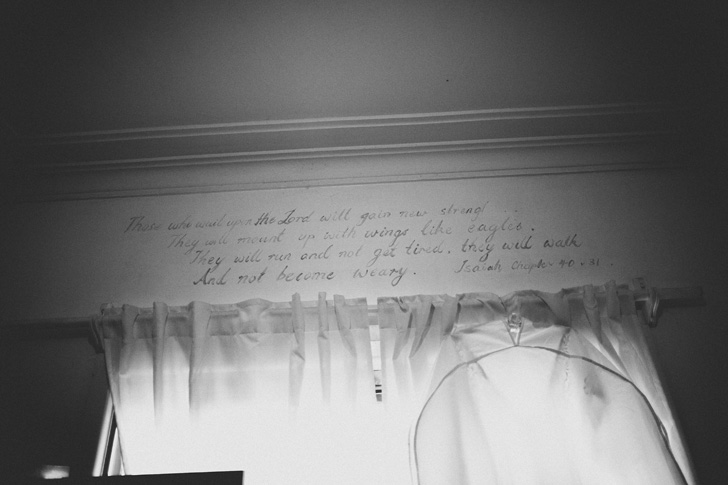 Those who wait upon the Lord will gain new streng
They will mount up with wings like eagles.
They will run and not get tired. they will walk
And not become weary. Isaiah Chapter 40 - 31.